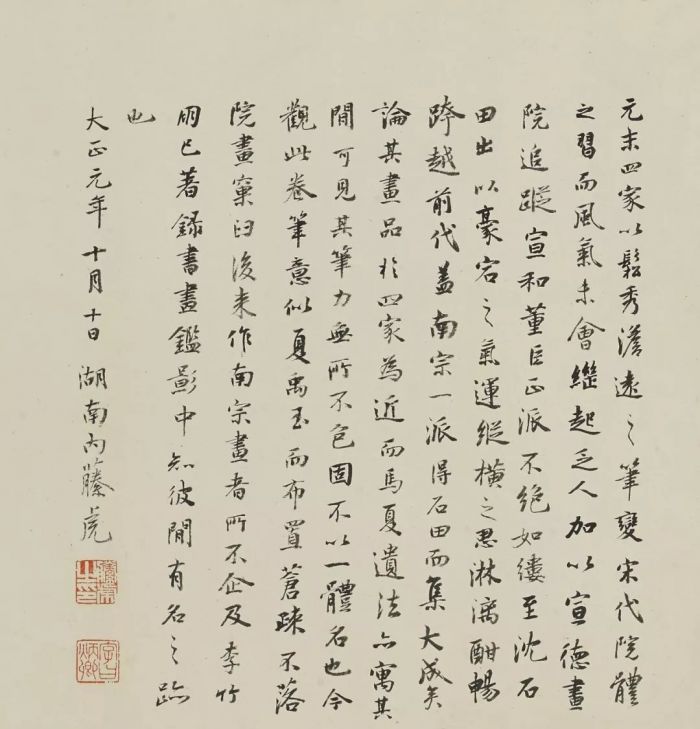 元末四家以鬆秀澹遠之筆變宋代院體
之習而風氣未會繼起乏人加以宣德畫
院追蹤宣和董巨正派不絕如縷至沈石
田出以豪宕之氣運縱橫之思淋漓酣暢
跨越前代蓋南宗一派得石田而集大成矣
論其畫品於四家為近而馬夏遺法亦寓其
間可見其筆力無所不包固不以一體名也今
觀此卷筆意似夏禹玉而布置蒼疎不落
院畫窠臼後来作南宗畫者所不企及李竹
朋已著録書畫鑑影中知彼間有名之跡
也
大正元年十月十日 湖南内藤虎
藤虎
字曰炳卿